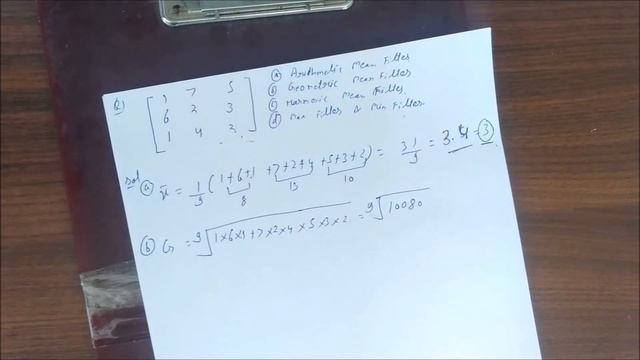 Q) [ 1 7 5 (a) Arithmetic Mean Filter
6 2 3 (b) Geometric Mean Filter
1 4 2 ] (c) Harmonic Mean Filter
(d) Max Filter & Min Filter.
Sol (a) x̄ = 1/9 (1+6+1 +7+2+4 +5+3+2) = 31/9 = 3.4 = 3
8 13 10
(b) G = 9√1×6×1+7×2×4×5×3×2 = 9√10080